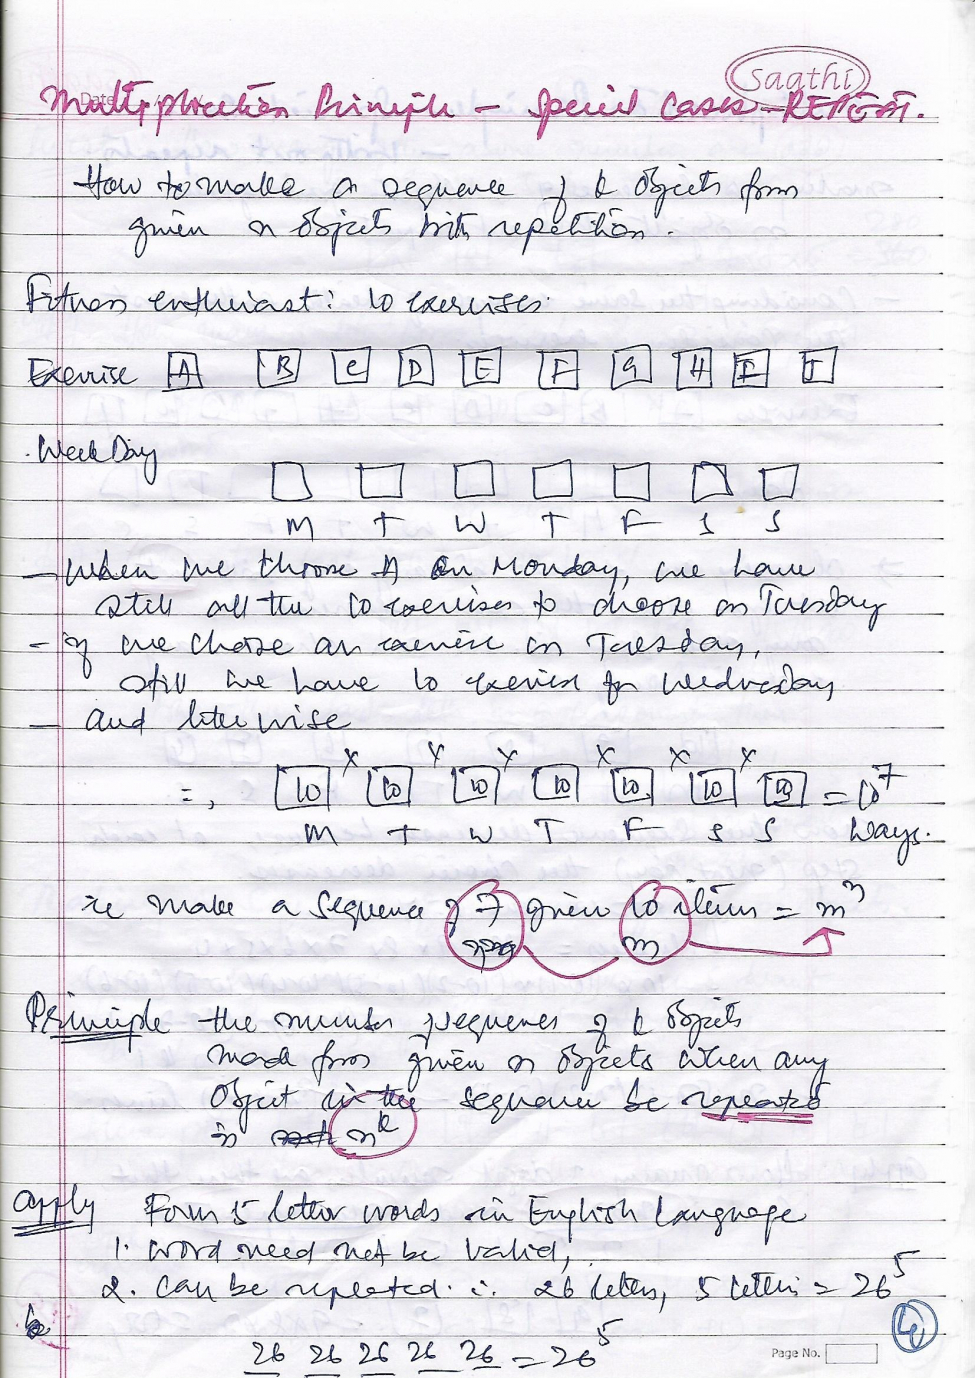 Saathi
Date / /
Multiplication Principle - Special Cases - REPEAT.
How to make a sequence of k objects from
given n objects with repetition.
Fitness enthusiast: 10 exercises.
Exercise A B C D E F G H I J
Week Day
M T W T F S S
- When we choose A on Monday, we have
still all the 10 exercises to choose on Tuesday
- If we chose an exercise on Tuesday,
still we have 10 exercises for Wednesday
- and likewise
=, 10 x 10 x 10 x 10 x 10 x 10 x 10 = 10^7
M T W T F S S Ways.
ie make a sequence of 7 given 10 items = m^n
m
Principle the number sequences of k objects
made from given n objects when any
object in the sequence be repeated
is n^k
Apply Form 5 letter words in English Language
1. word need not be valid,
2. Can be repeated. ∴ 26 letters, 5 letters = 26^5
26 26 26 26 26 = 26^5
Page No.